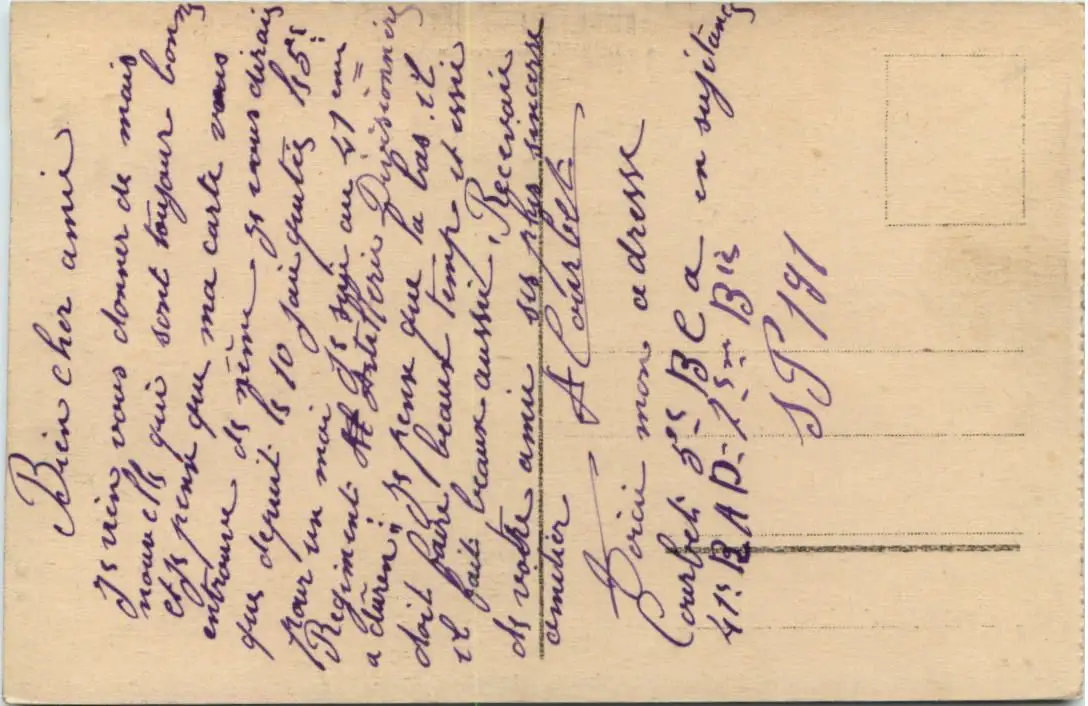 Bien cher amie
Je vien vous donner de mais
nouvelle qui sont toujour bonz
et je pense que ma carte vous
entrouve de même je vous dirais
que depuit le 10 jai quitéz le 5e:
pour un moi Je suje au 41 eme
Regiment Artillerie Divisionnéry
a duren; je pense que la bas il
doit faire beaux temp et issie
il fait beaux aussit, Recevair
de votre amie ses plus sincerse
amitier
A Courbet
Voici mon adresse
Courbet 5e B C a en sujitance
41e R A D - 1er Bie
S P 191